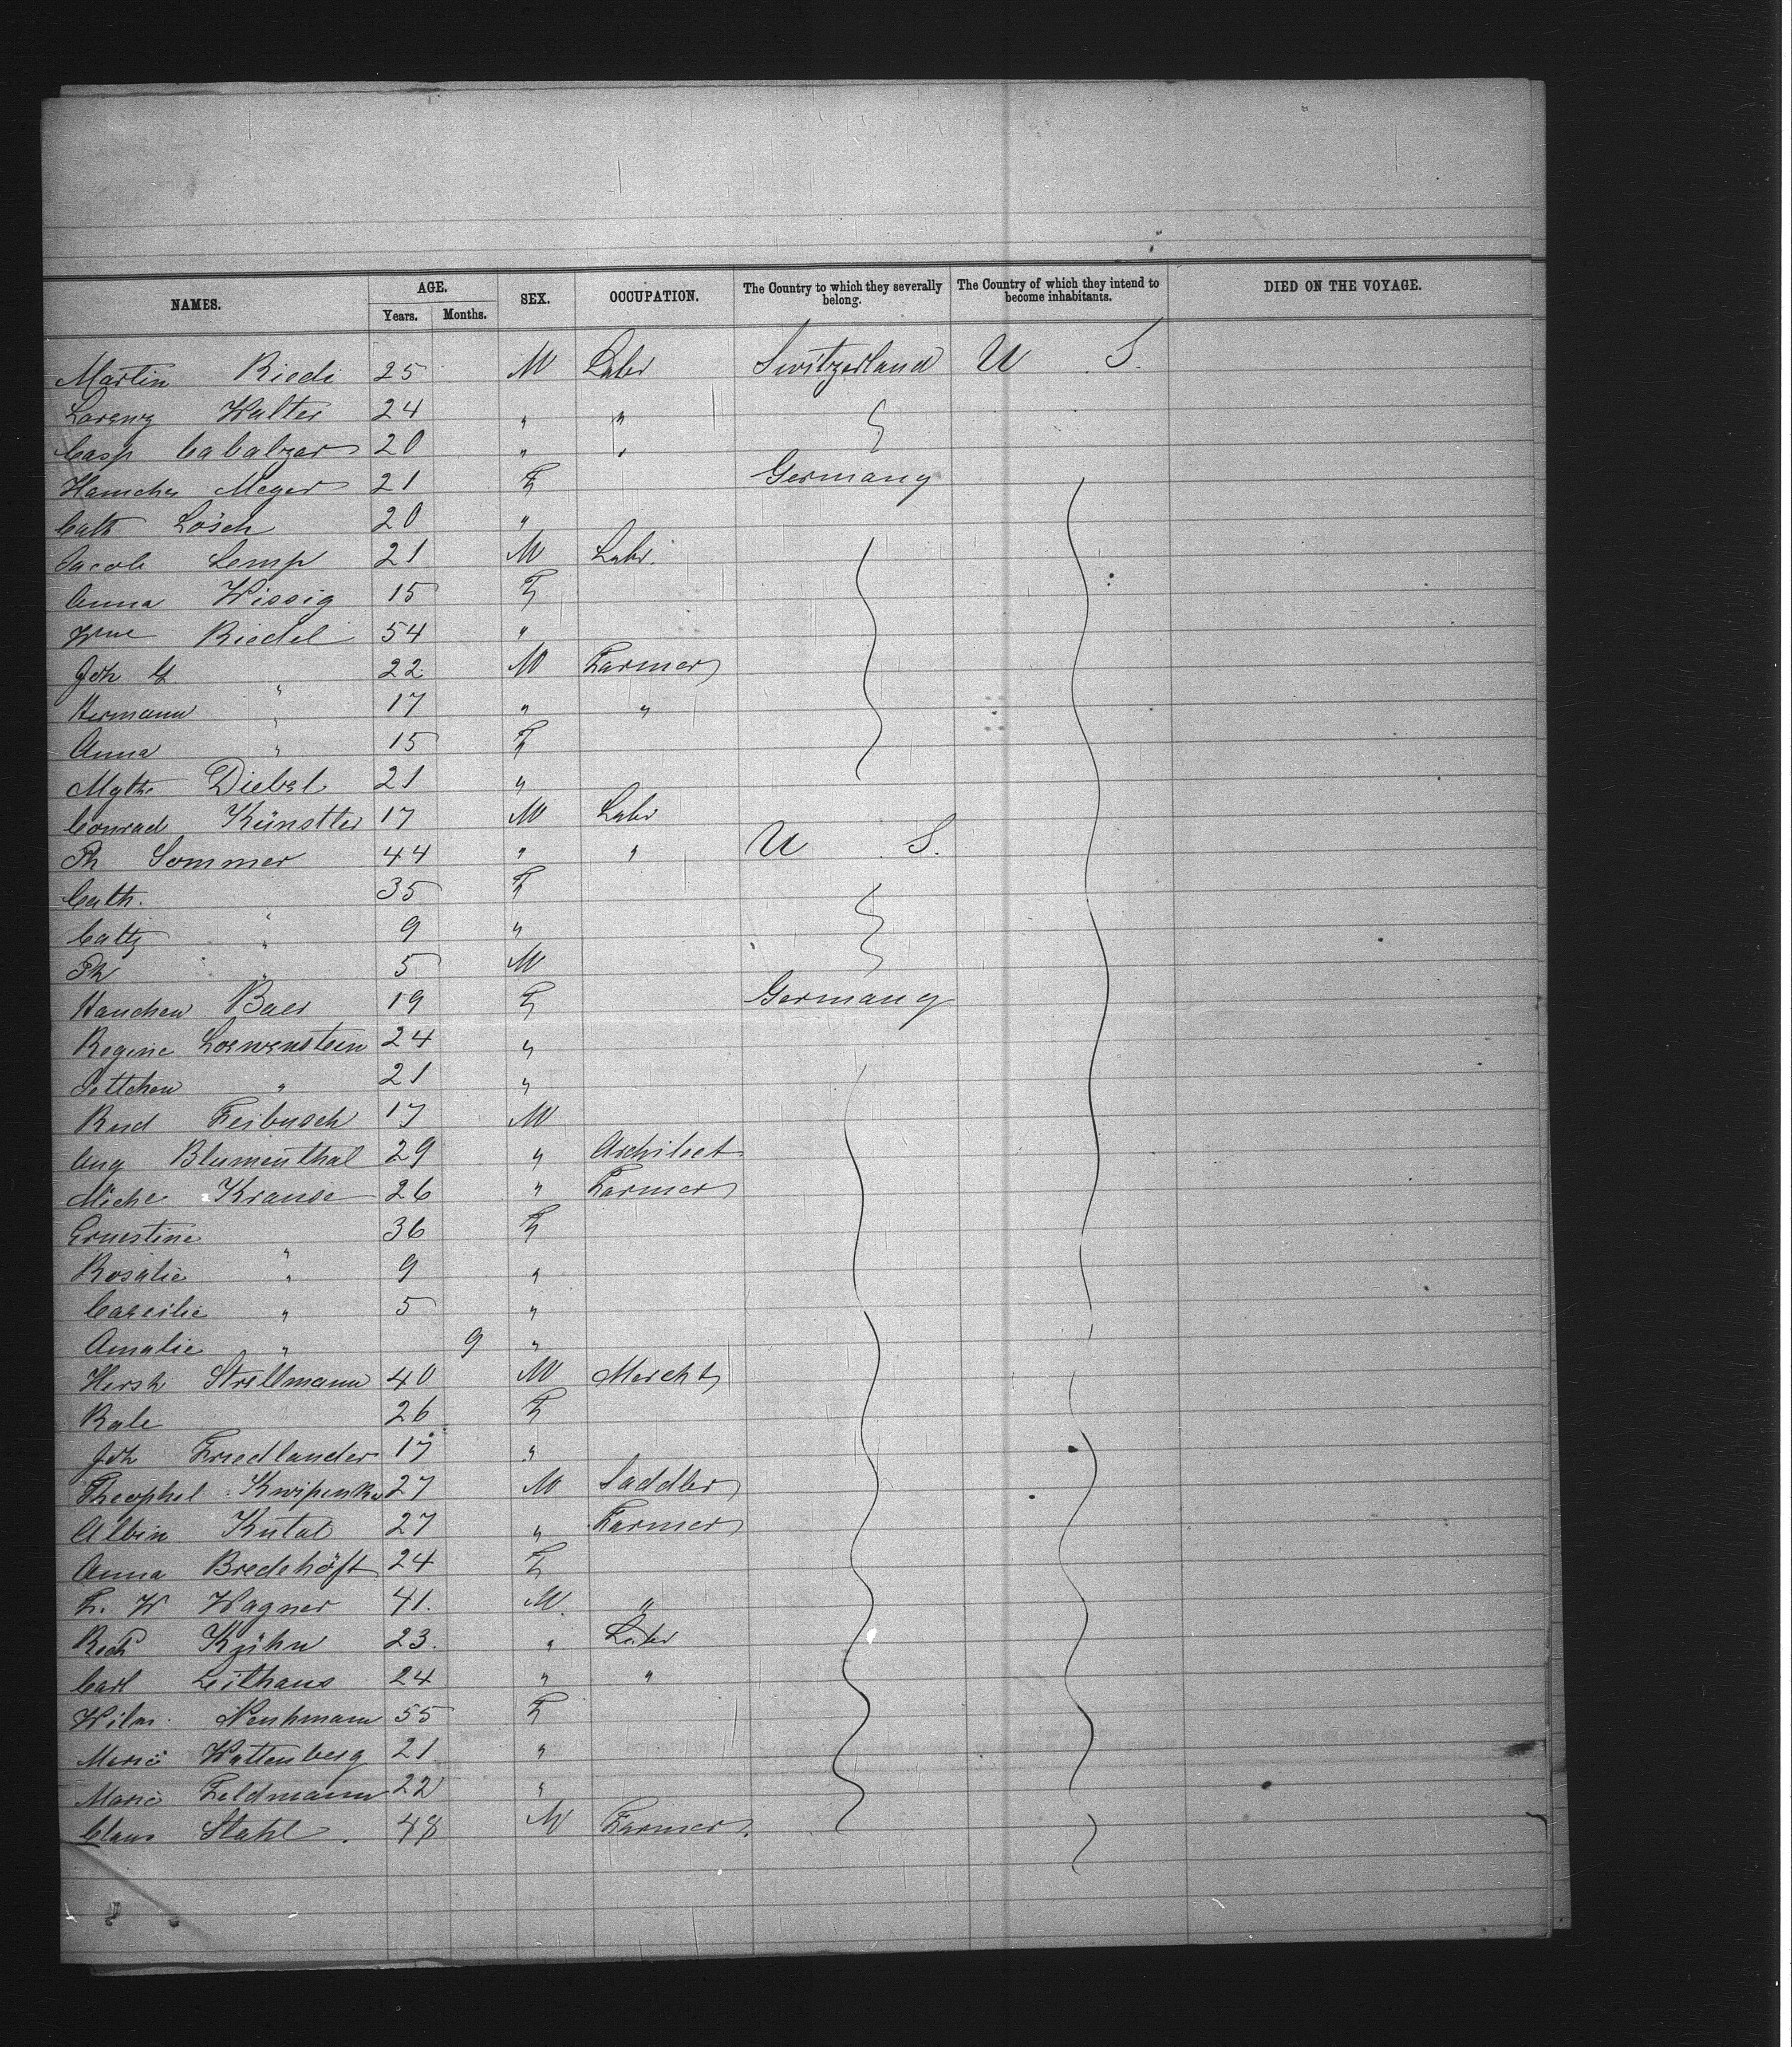 NAMES. AGE. Years. Months. SEX. OCCUPATION. The Country to which they severally belong. The Country of which they intend to become inhabitants. DIED ON THE VOYAGE.
Martin Riedi 25 M Labr Switzerland U S.
Lorenz Walter 24 " "
Casp Cabalzar 20 " "
Meyer 21 F Germany
Cath Lösch 20 "
Jacob Lemp 21 M Labr.
Anna Wissig 15 F
Wme Riedel 54 "
Joh G. " 22 M Farmer
Hermann " 17 " "
Anna " 15 F
Mgth. Diebel 21 "
Conrad Künstler 17 M Labr
Ph Sommer 44 " " U S.
Cath. " 35 F
Catty " 9 "
Ph " 5 M
Hanchen Baer 19 F Germany
Regine Loewenstein 24 "
Jettchen " 21 "
Rud Feibusch 17 M
Aug Blumenthal 29 " Architect
Krause 26 " Farmer
Ernestine " 36 F
Rosalie " 9 "
Caecilie " 5 "
Amalie " 9 "
Hersh Strellmann 40 M Mercht
Rale 26 F
Joh Friedlander 17 "
Theophel 27 M Saddler
Albin Kutal 27 " Farmer
Anna Bredehöft 24 F
F. W Wagner 41. M. "
Rich Kühn 23. " Labr
Carl Leithaus 24 " "
Wilm. 55 F
Marie Wattenberg 21 "
Marie Feldmann 22 "
Claus Stahl. 48 M Farmer.